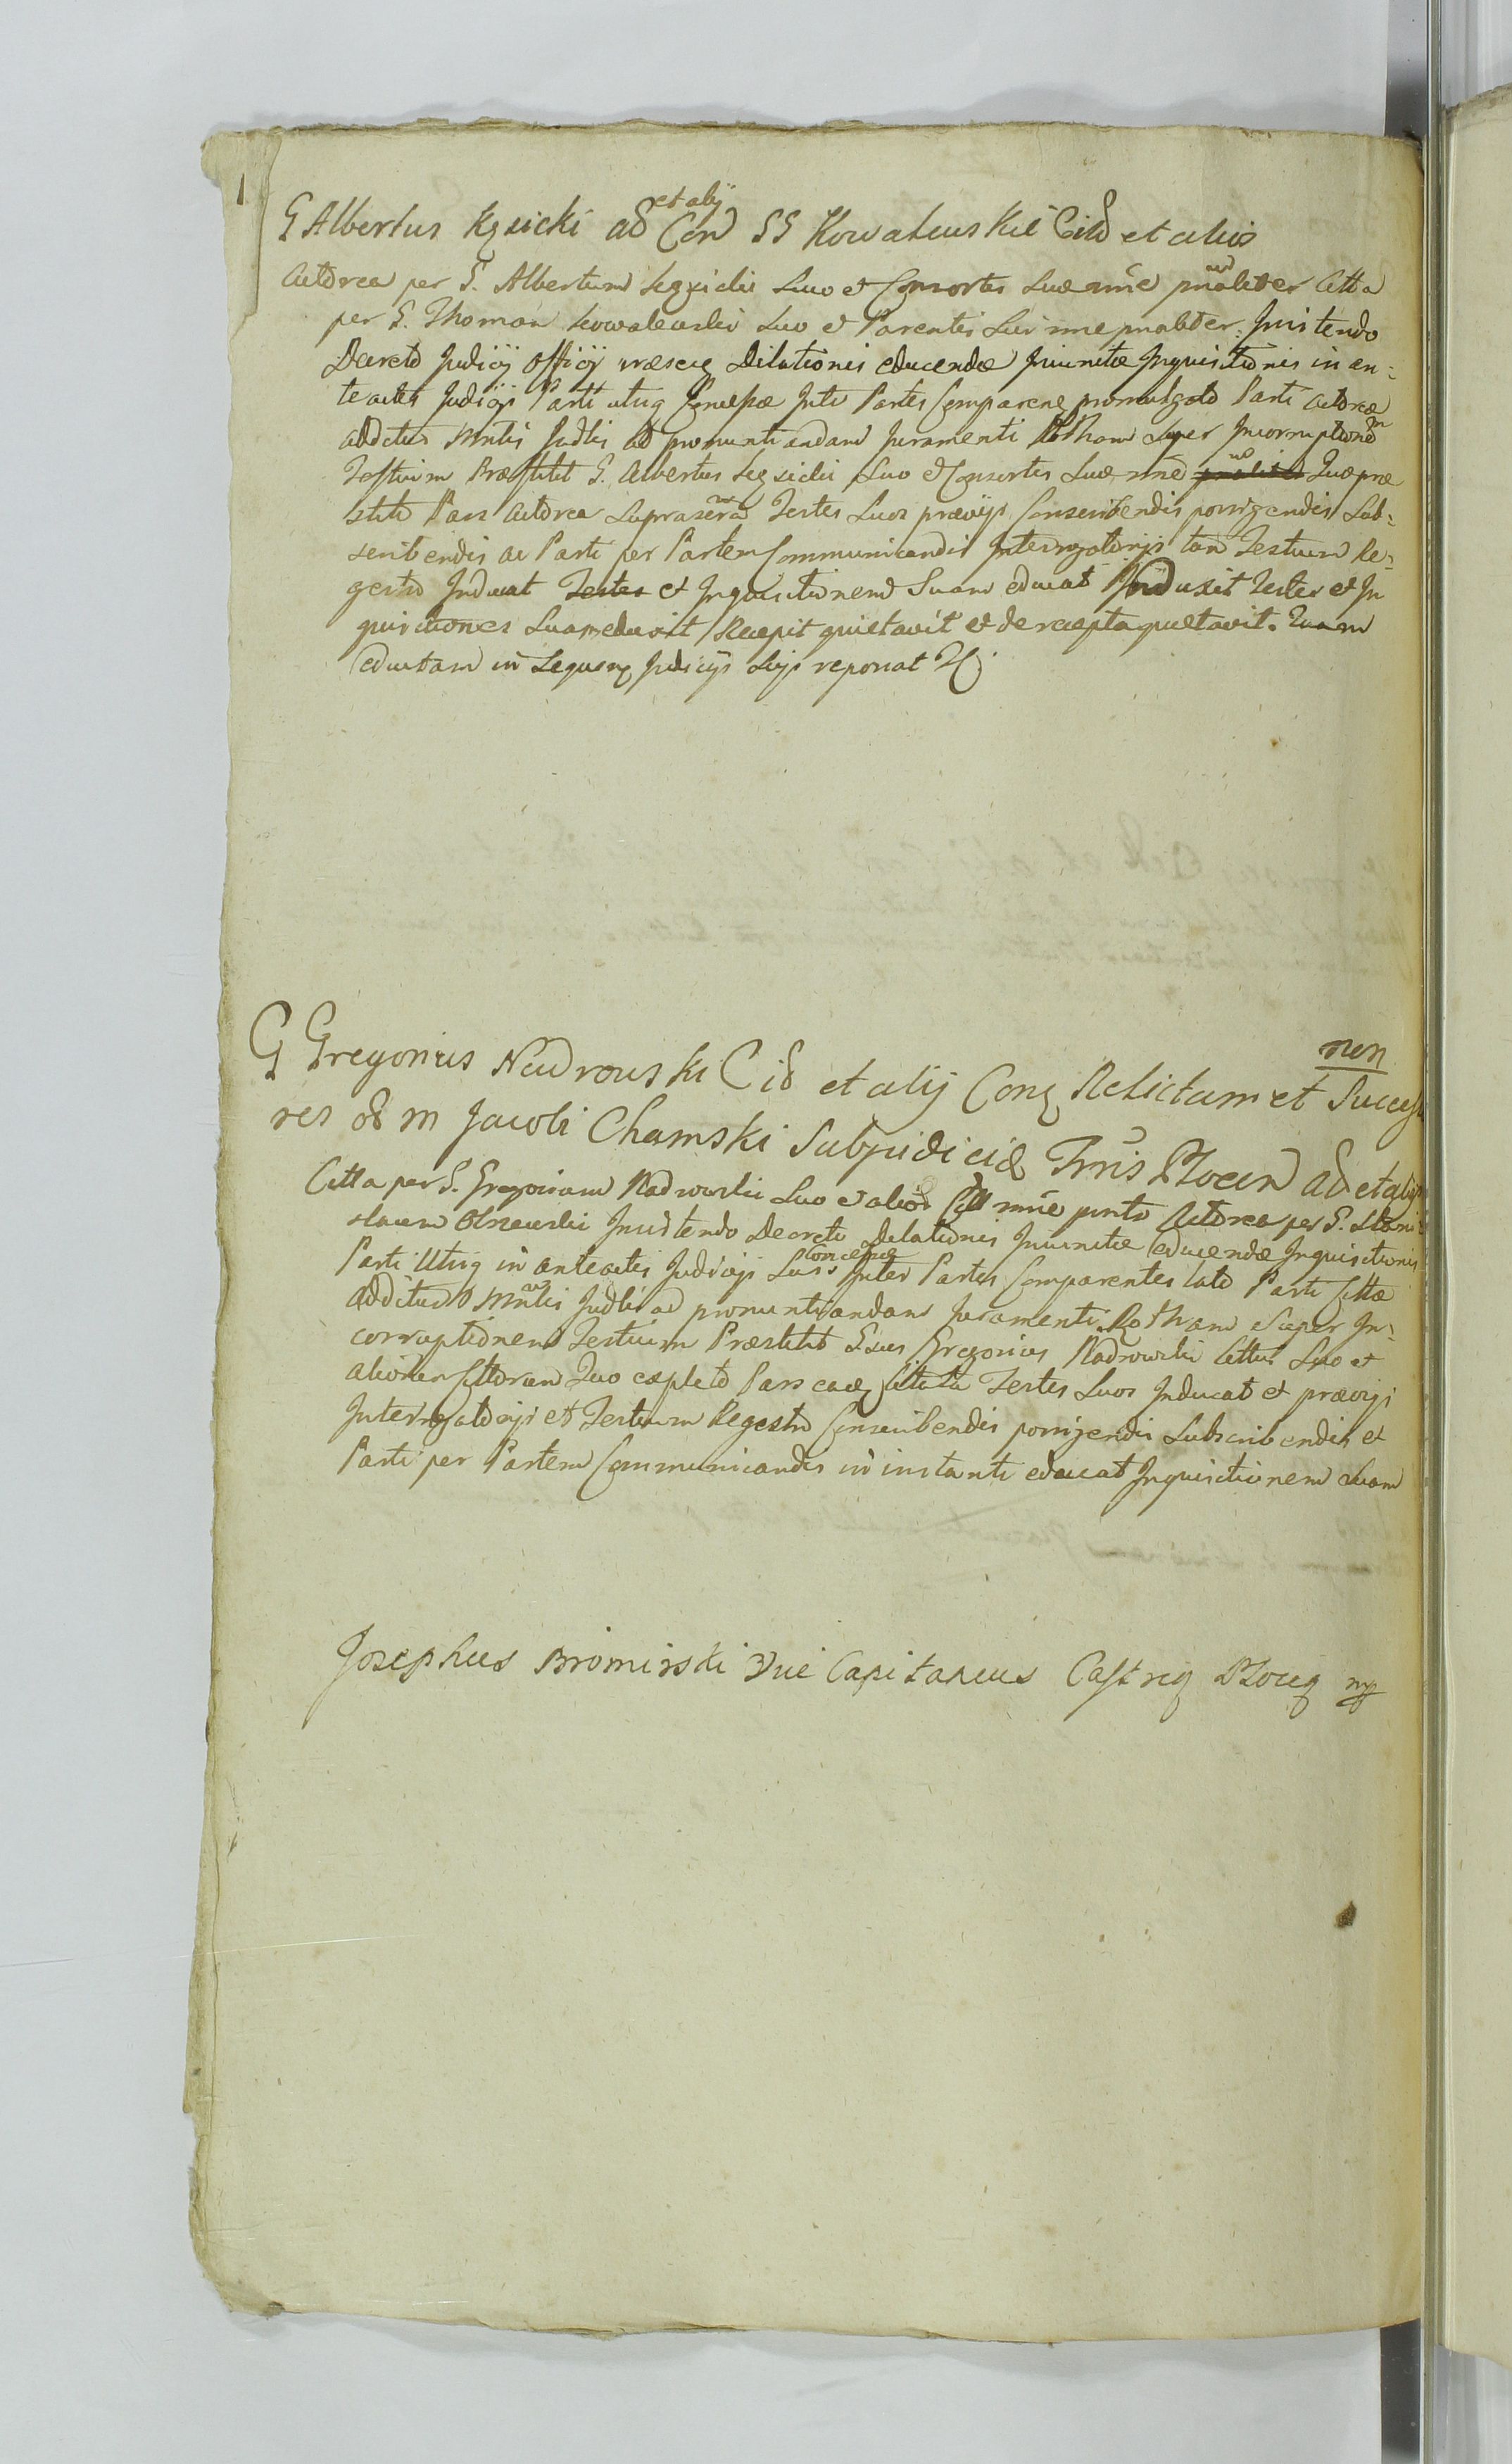 G Albertus Kęsicki ad et alij Con SS Kowalewskie Citd et alios
Actorea per G. Albertum Kęsicki Suo et Consortis Suæ nne pnaliter Citta
per G. Thomam Kowalewski Suo et Parentis Sui nne pnaliter. Insistendo
Decreto Judicij Officij Dilationis educendæ Juramentæ Inquisitionis in an-
teactis Judicijs Parti utrig Concessæ Inter Partes Comparenq promulgato Parti Actoreæ
additus Mntis Judlis ad pronuntiandam Juramenti Rotham Super Incorruptionem
Testium Præstitit G. Albertus Kęsicki Suo et Consortis Suæ nne Quo præ
stito Pars Actorea Testes Suos prævijs Conscribendis porrigendis Sub-
scribendis ac Parti per Partem Communicandis Interrogatorijs tam Testium Re-
gestro Inducat Testes et Inquisitionem Suam educat Induxit Testes et In
quisitiones Suam eduxit Recepit quietavit et de recepta quietavit. Quam
eductam in Sequenq Judicijs Suis reponat
G Gregorius Nadrowski Cid et alij Conq Relictam et non Successo
res od m Jacobi Chamski Subjudicis Trris Plocen ad et alij
Citta per G. Gregorium Nadrowski Suo et aliorum nne Actorea per G. Stani
slaum Olszewski Insistendo Decreto Dilationis Juramentæ educendæ Inquisitionis
Parti Utrig in anteactis Judicijs Suis Concessæ Inter Partes Comparentes lato Parti Cittæ
additus Mntis Judlis ad pronuntiandam Juramenti Rotham Super In-
corruptionem Testium Præstitit Gsus Gregorius Nadrowski Cittus Suo et
aliorum Cittorum Quo expleto Pars eadq Citata Testes Suos Inducat et prævijs
Interrogatorijs et Testium Regestro Conscribendis porrigendis Subscribendis et
Parti per Partem Communicandis in instanti educat Inquisitionem Suam
Josephus Bromirski Vice Capitaneus Castrq Plocq mp